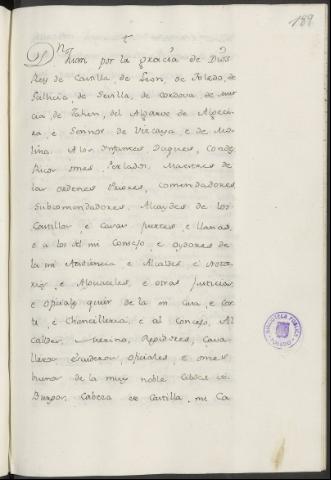 189
Dn Juan por la gracia de Dios
Rey de Castilla, de Leon, de Toledo, de
Gallicia, de Sevilla, de Cordova, de Mur
cia, de Jahen, del Algarve, de Algeci
ra, e Sennor de Vizcaya, e de Mo
lina. A los Infantes, Duques, Condes
Ricos omes, Perlados, Maestres de
las ordenes Priores, comendadores,
Subcomendadores, Alcaydes de los
Castillos, e casas fuertes, e llanas,
e a los del mi Consejo, e oydores de
la mi Audiencia e Alcaldes e Nota
rios, e Alguaciles, e otras justicias
e oficiales quier de la mi Casa, e Cor
te, e Chancilleria, e al Concejo, Al
caldes, Merino, Regidores, Cava
lleros escuderos, oficiales, e omes
buenos de la muy noble Cibdat de
Burgos, Cabeza de Castilla, mi Ca
BIBLIOTECA PUBLICA
TOLEDO